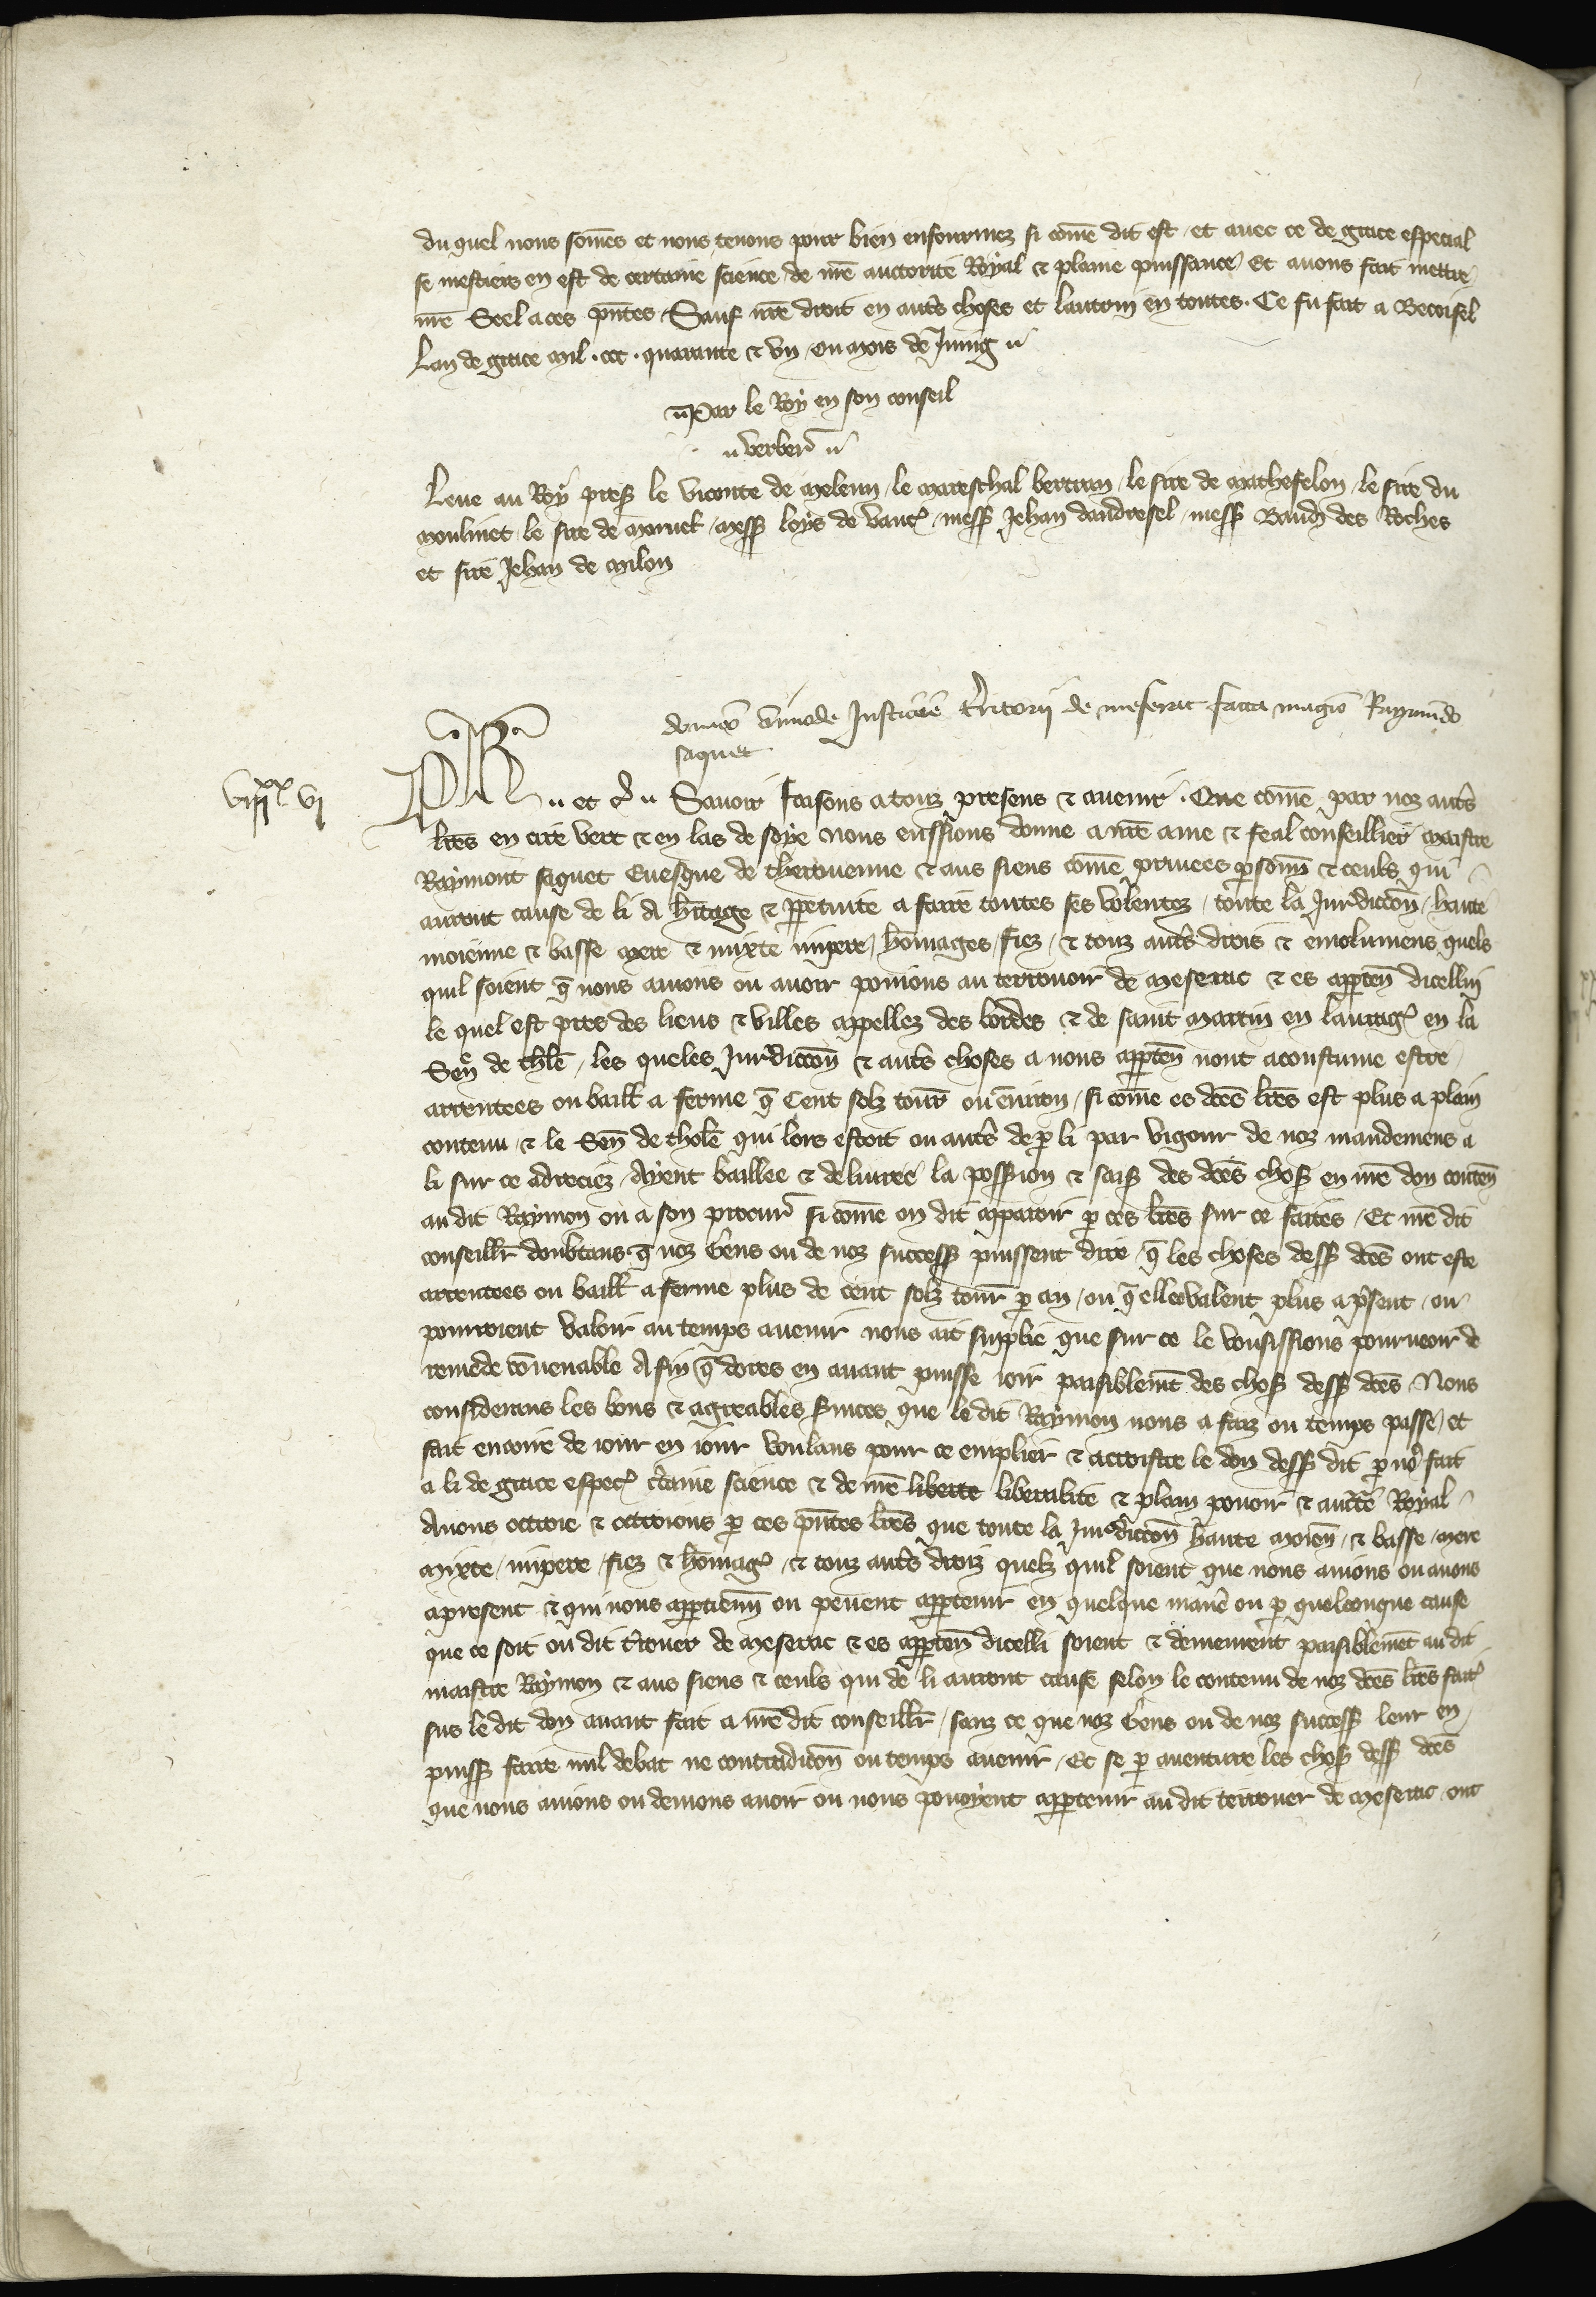 du quel nous som̃es et nous tenons pour bien enfourmez si com̃e dit est et auec ce de grace especial
se mestiers en est de certaine science de nr̃e auctorite Royal & plaine puissance Et auons fait mettre
nr̃e Seel a ces pñtes Sauf nr̃e droit en autrẽs choses et lautrui en toutes. Ce fu fait a Becoisel
Lan de grace mil. ccc. quarante & vn ou mois de Juing
Par le Roy en son conseil
verberr̃
Leue au Roy preß le viconte de Meleun, le mareschal bertran, le sire de Mathefelon, le sire du
moulinet, le sire de , messß loys de vauc̃, messß Jehan dandresel, messß Baud des Roches
et sire Jehan de Milon
donaco̅ om̅imode Justicie t̃ritorij de meserac facta magr̃o Raymu̅do
saquet
viijxx vj
Ph̃ et c̃ Sauoir faisons a touz presens & auenir. Que com̃e par noz autrẽs
lr̃es en cire vert & en las de soye nous eussions donne a nr̃e ame & feal conseillier maistre
Raymont saquet Euesque de therouenne & aus siens com̃e priuees p̱som̃ & ceuls qui
auront cause de li A hr̃itage & p̱petuite a faire toutes ses volentez, toute la Juridiccõn, haute
moienne & basse mere & mixte impere, hom̃ages, fiez, & touz autrẽs drois & emolumens quels
quil soient q̃ nous auions ou auoir pouions au terrouoir de Meserac & es app̱teñ dicellui
le quel est pres des lieus & villes appellez des bordes & de saint martin en laurag̃ en la
Señ de thl̃e, les queles Juridiccõn & autrẽs choses a nous app̱teñ nont acoustume estre
arrentees ou baill̃ a ferme q̃ Cent solz tour̃ ou enuiron, si com̃e es dc̃es lr̃es est plus a plain
contenu & le Señ de thol̃e qui lors estoit ou autrẽs de p̱ li par vigour de noz mandemens a
li sur ce adreciez Ayent baillee & deliuree la possß̃ion & saiß des dc̃es choß en nr̃e don conteñ
au dit Raymon ou a son procur̃ si com̃e on dit apparoir p̱ ces lr̃es sur ce faites, Et nr̃e dit
conseillr̃ doubtans q̃ noz Gens ou de noz successß puissent dire, q̃ les choses dessß dc̃es ont este
arrentees ou baill̃ a ferme plus de cent solz tour̃ p̱ an, ou q̃ elles valent plus a p̃sent, ou
pourroient valoir au temps auenir nous ait supplie que sur ce le vousissions pourueoir de
remede co̅uenable Afin q̃ dores en auant puisse ioir paisiblem̃t des choß dessß dc̃es Nous
considerans les bons & agreables s̃uices que le dit Raymon nous a faiz ou temps passe, et
fait encore de iour en iour voulans pour ce emplier & accroistre le don dessß dit p̱ nos̃ fait
a li de grace espec̃ c̃taine science & de nr̃e liberte liberalite & plain pouoir & auct̃e Royal
Auons ottroie & ottroions p̱ ces pñtes lr̃es que toute la Juridiccõn haute moieñ, & basse, mere
mixte, impere, fiez & hom̃ag̃, & touz autrẽs droiz quelz quil soient que nous auions ou auons
a present & qui nous app̱tienñ ou peuent app̱tenir en quelque manẽ ou p̱ quelconque cause
que ce soit ou dit t̃rouer de Meserac & es app̱teñ dicelli soient & demeurẽnt paisiblem̃t au dit
maistre Raymon & aus siens & ceuls qui de li auront cause selon le contenu de noz dc̃es lr̃es fait̃
sus le dit don auant fait a nr̃e dit conseillr̃, sanz ce que noz Gens ou de noz successß leur en
puissß faire nul debat ne contradicõn ou temps auenir, Et se p̱ auenture les choß dessß dc̃es
que nous auions ou deuions auoir ou nous pouoyent app̱tenir au dit terrouer de Meserac ont